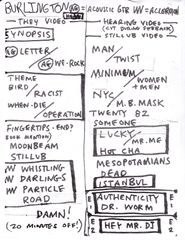 BURLINGTON AG = ACOUSTIC GTR W = ACCORDION
NAME
THEY VIDEO
SYNOPSIS
AG LETTER
AG WE-ROCK
THEME
BIRD / RACIST
WHEN DIE / OPERATION
FINGERTIPS - END?
MOONBEAM
STILLUB
W WHISTLING
W DARLING-S
W PARTICLE
ROAD
DAMN!
(20 MINUTES OFF!)
HEARING VIDEO
(CUT DURING FEEDBACK)
STILLUB VIDEO
MAN / TWIST
MINIMUM / WOMEN + MEN
NYC / M.B. MASK
TWENTY 82
SOMEONE
LUCKY / MR. ME
HOT CHA
MESOPOTAMIANS
DEAD
ISTANBUL
E1 AUTHENTICITY E1
DR. WORM
E2 HEY MR. DJ E2